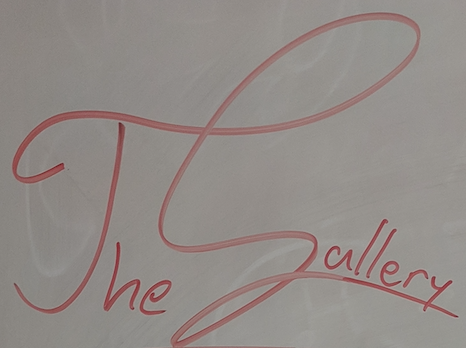 The Gallery